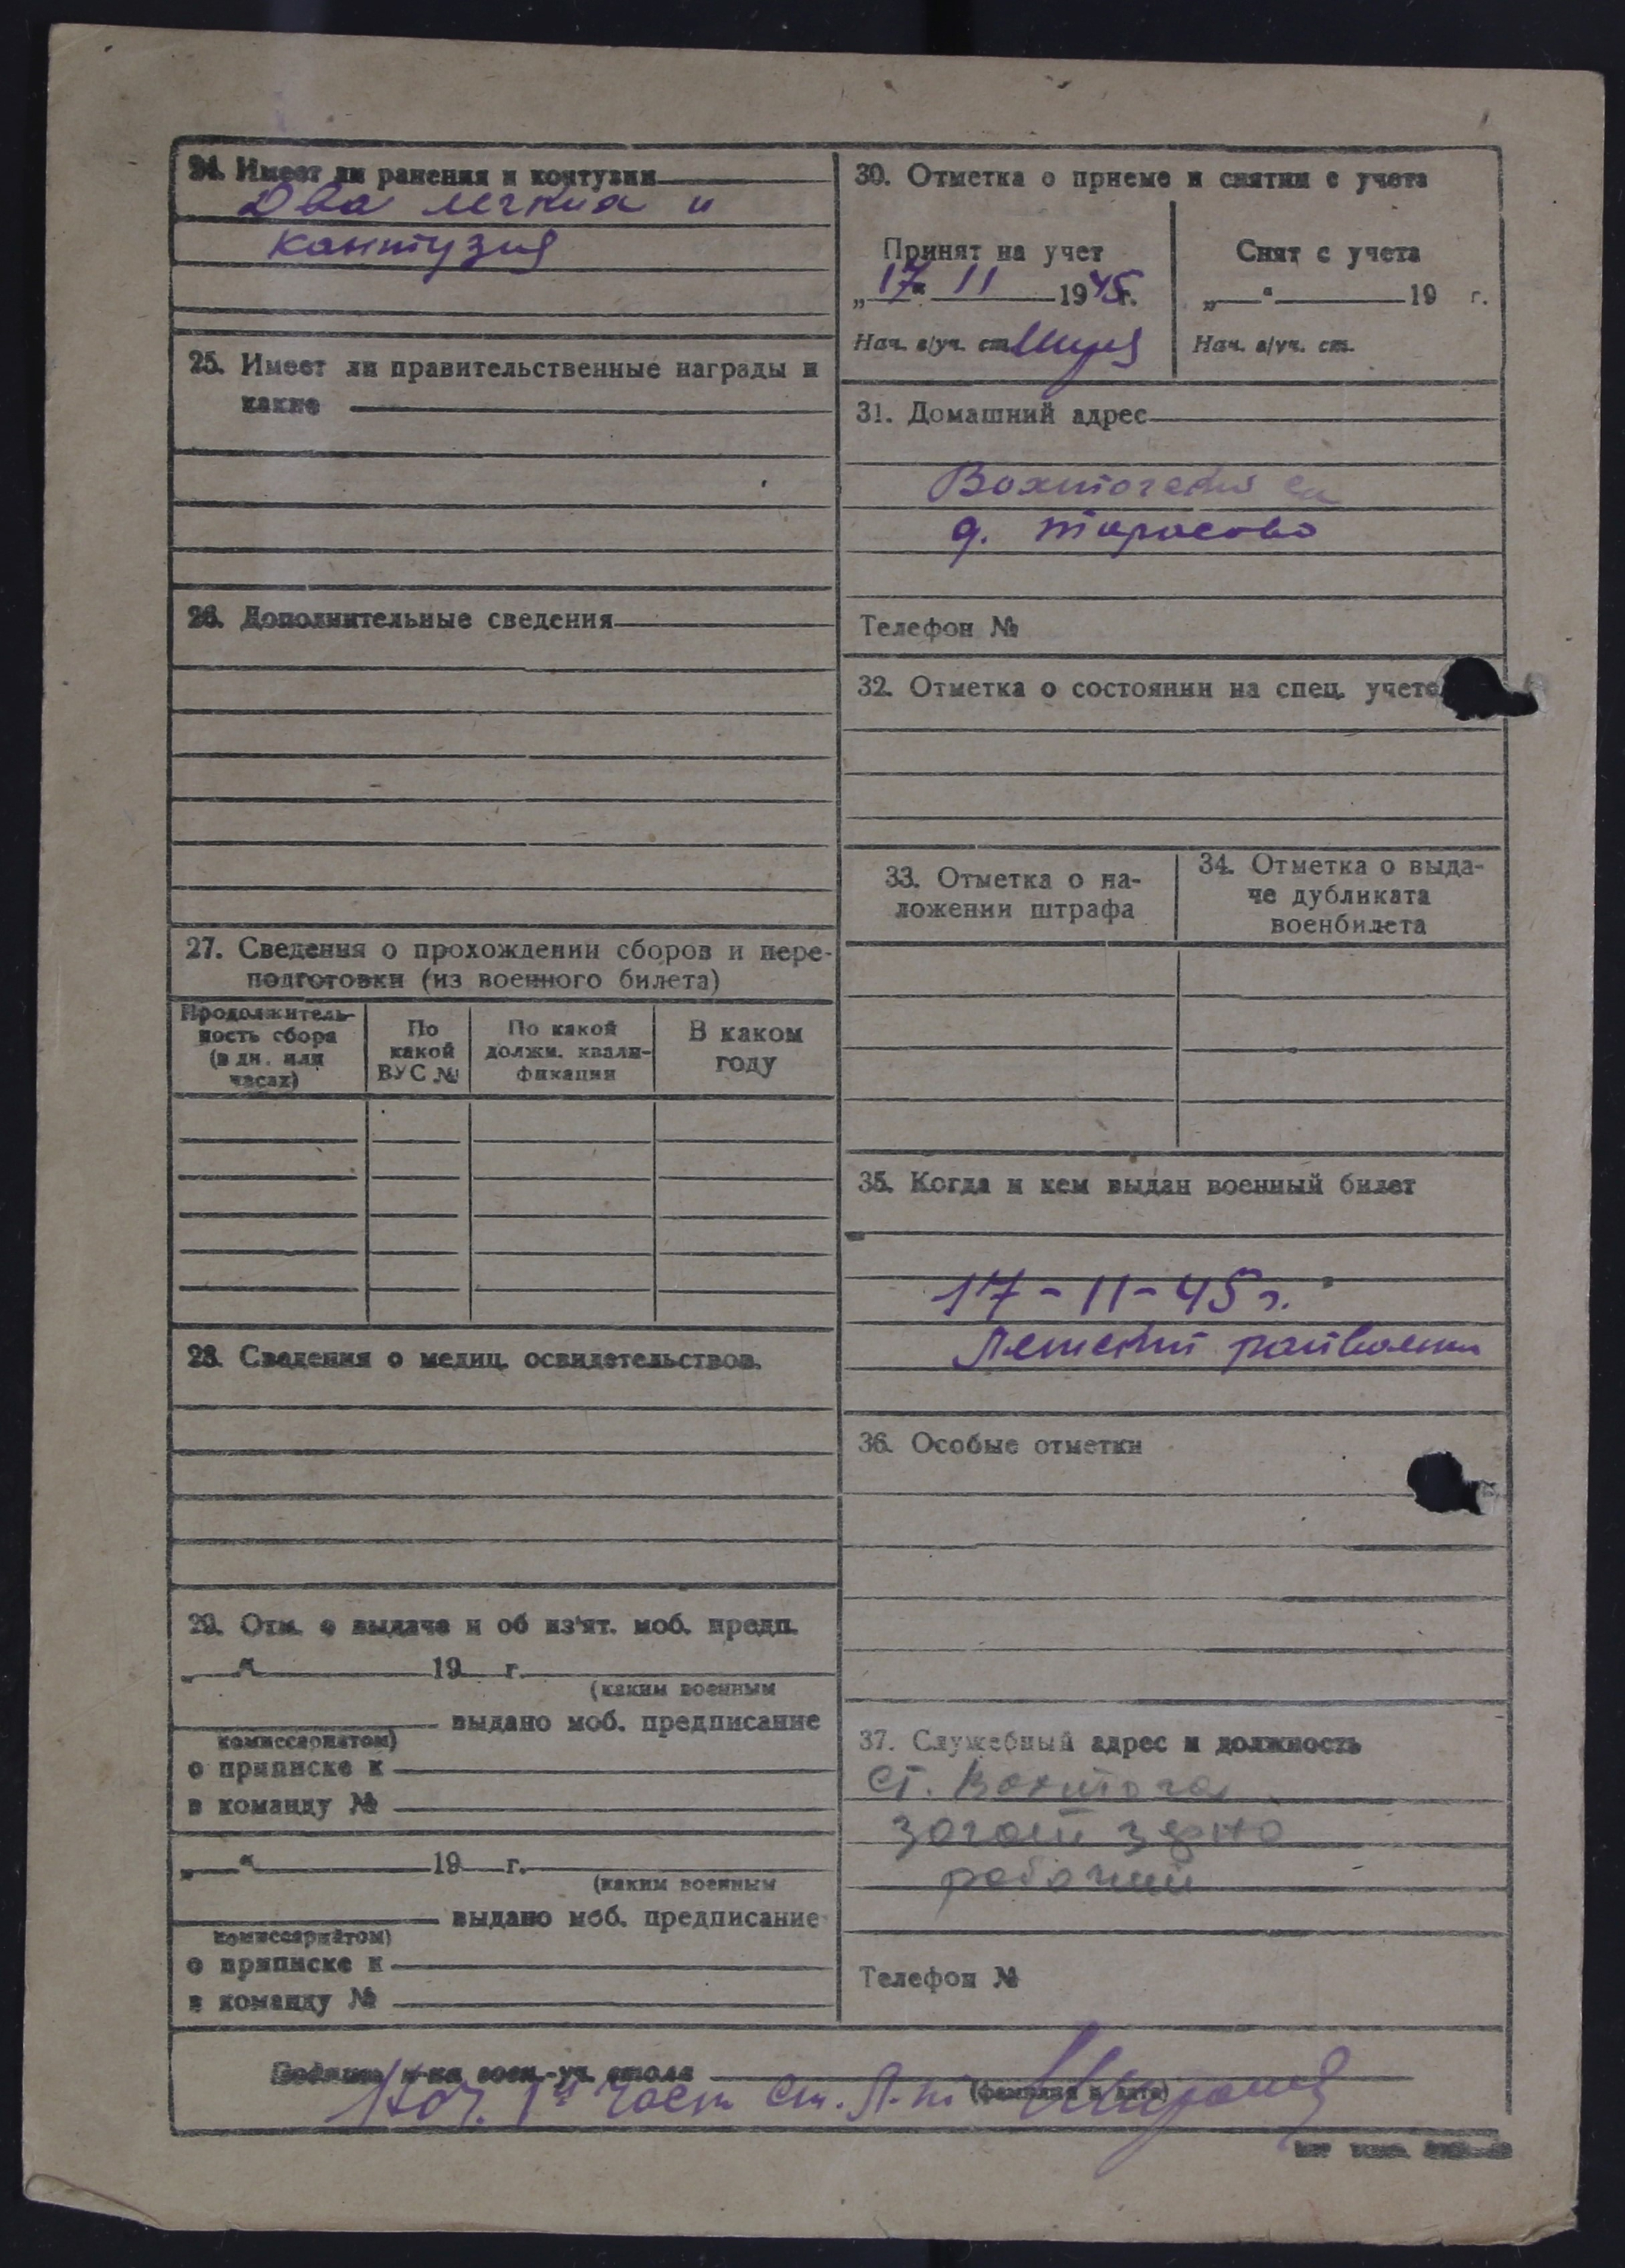 24. Имеет ли ранения и контузии
Два легких и
контузия
25. Имеет ли правительственные награды и
какие
26. Дополнительные сведения
27. Сведения о прохождении сборов и пере-
подготовки (из военного билета)
Продолжитель-
ность сбора
(в дн. или
часах)
По
какой
ВУС №
По какой
должн. квали-
фикации
В каком
году
28. Сведения о медиц. освидетельствов.
29. Отм. о выдаче и об из'ят. моб. предп.
„ “ 19 г.
(каким военным
выдано моб. предписание
комиссариатом)
о приписке к
в команду №
„ “ 19 г.
(каким военным
выдано моб. предписание
комиссариатом)
о приписке к
в команду №
30. Отметка о приеме и снятии с учета
Принят на учет
„17“ 11 1945г.
Нач. в/уч. ст.
Снят с учета
„ “ 19 г.
Нач. в/уч. ст.
31. Домашний адрес
Вохтогский с/с
д. Тарасово
Телефон №
32. Отметка о состоянии на спец. учете
33. Отметка о на-
ложении штрафа
34. Отметка о выда-
че дубликата
военбилета
35. Когда и кем выдан военный билет
17-11-45 г.
райвоенк
36. Особые отметки
37. Служебный адрес и должность
ст. Вохтога
Загот зерно
рабочий
Телефон №
Подпись н-ка воен.-уч. стола
(фамилия и дата)
Нач. 1й част ст. л-т